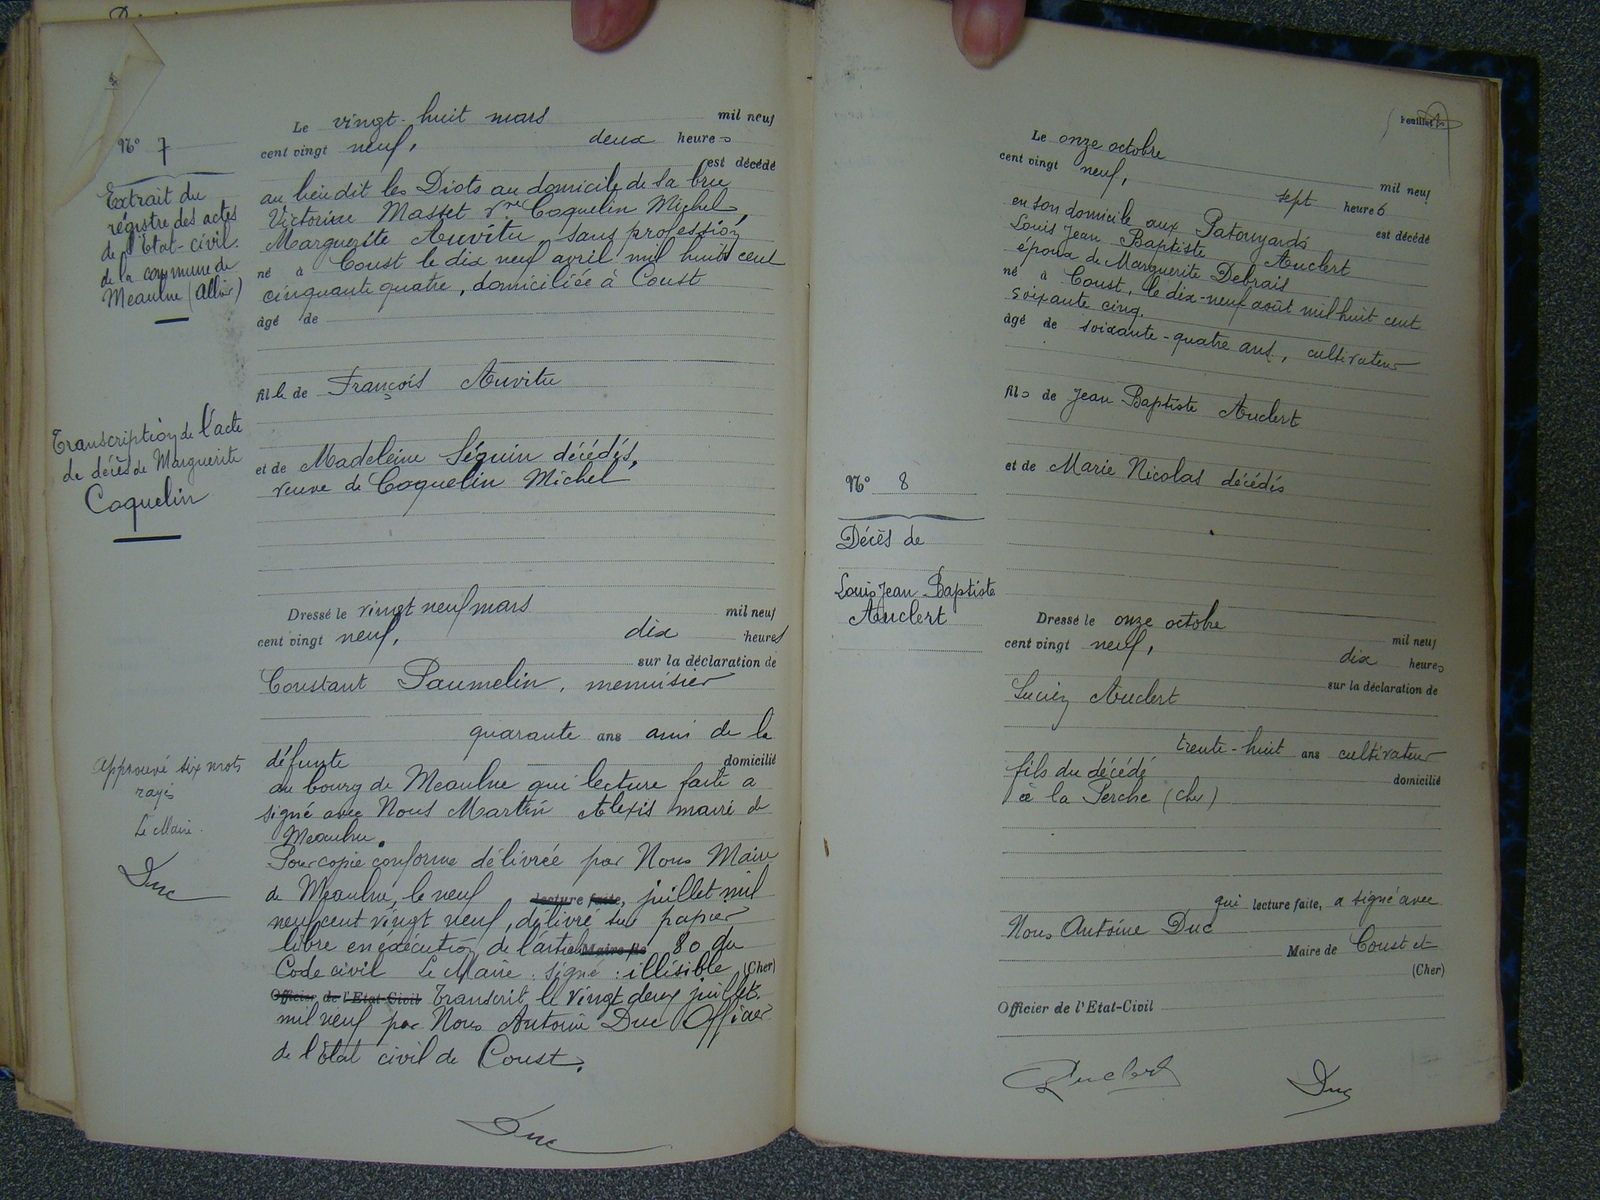 N° 7
Extrait du
régistre des actes
de l'Etat-civil
de la commune de
Meaulne (Allier)
Transcription de l'acte
de décès de Marguerite
Coquelin
Approuvé six mots
rayés
Le Maire.
Duc
Le vingt-huit mars mil neuf
cent vingt neuf, deux heures
est décédé
au lieu dit les Diots au domicile de sa bru
Victorine Masset Vve Coquelin Michel,
Marguerite Auvitu, sans profession
né à Coust le dix neuf avril mil huit cent
cinquante quatre, domiciliée à Coust
âgé de
fille de François Auvitu
et de Madeleine Séguin décédés,
veuve de Coquelin Michel
Dressé le vingt neuf mars mil neuf
cent vingt neuf, dix heures
sur la déclaration de
Constant Paumelin, menuisier
quarante ans ami de la
défunte domicilié
au bourg de Meaulne qui lecture faite a
signé avec Nous Martin Alexis maire de
Meaulne.
Pour copie conforme délivrée par Nous Maire
de Meaulne, le neuf lecture faite, juillet mil
neuf cent vingt neuf, délivré sur papier
libre en exécution de l'article Maire de 80 du
Code civil Le Maire : signé : illisible (Cher)
Officier de l'Etat-Civil Transcrit le vingt deux juillet
mil neuf par Nous Antoine Duc Officier
de l'Etat civil de Coust.
Duc
Feuillet
N° 8
Décès de
Louis Jean Baptiste
Auclert
Le onze octobre mil neuf
cent vingt neuf, sept heures
est décédé
en son domicile aux Patouyards
Louis Jean Baptiste Auclert
époux de Marguerite Debrais
né à Coust, le dix-neuf août mil huit cent
soixante cinq.
âgé de soixante-quatre ans, cultivateur
fils de Jean Baptiste Auclert
et de Marie Nicolas décédés
Dressé le onze octobre mil neuf
cent vingt neuf, dix heures
sur la déclaration de
Lucien Auclert
trente-huit ans cultivateur
fils du décédé domicilié
à la Perche (Cher)
qui lecture faite, a signé avec
Nous Antoine Duc
Maire de Coust et
(Cher)
Officier de l'Etat-Civil
Auclert Duc